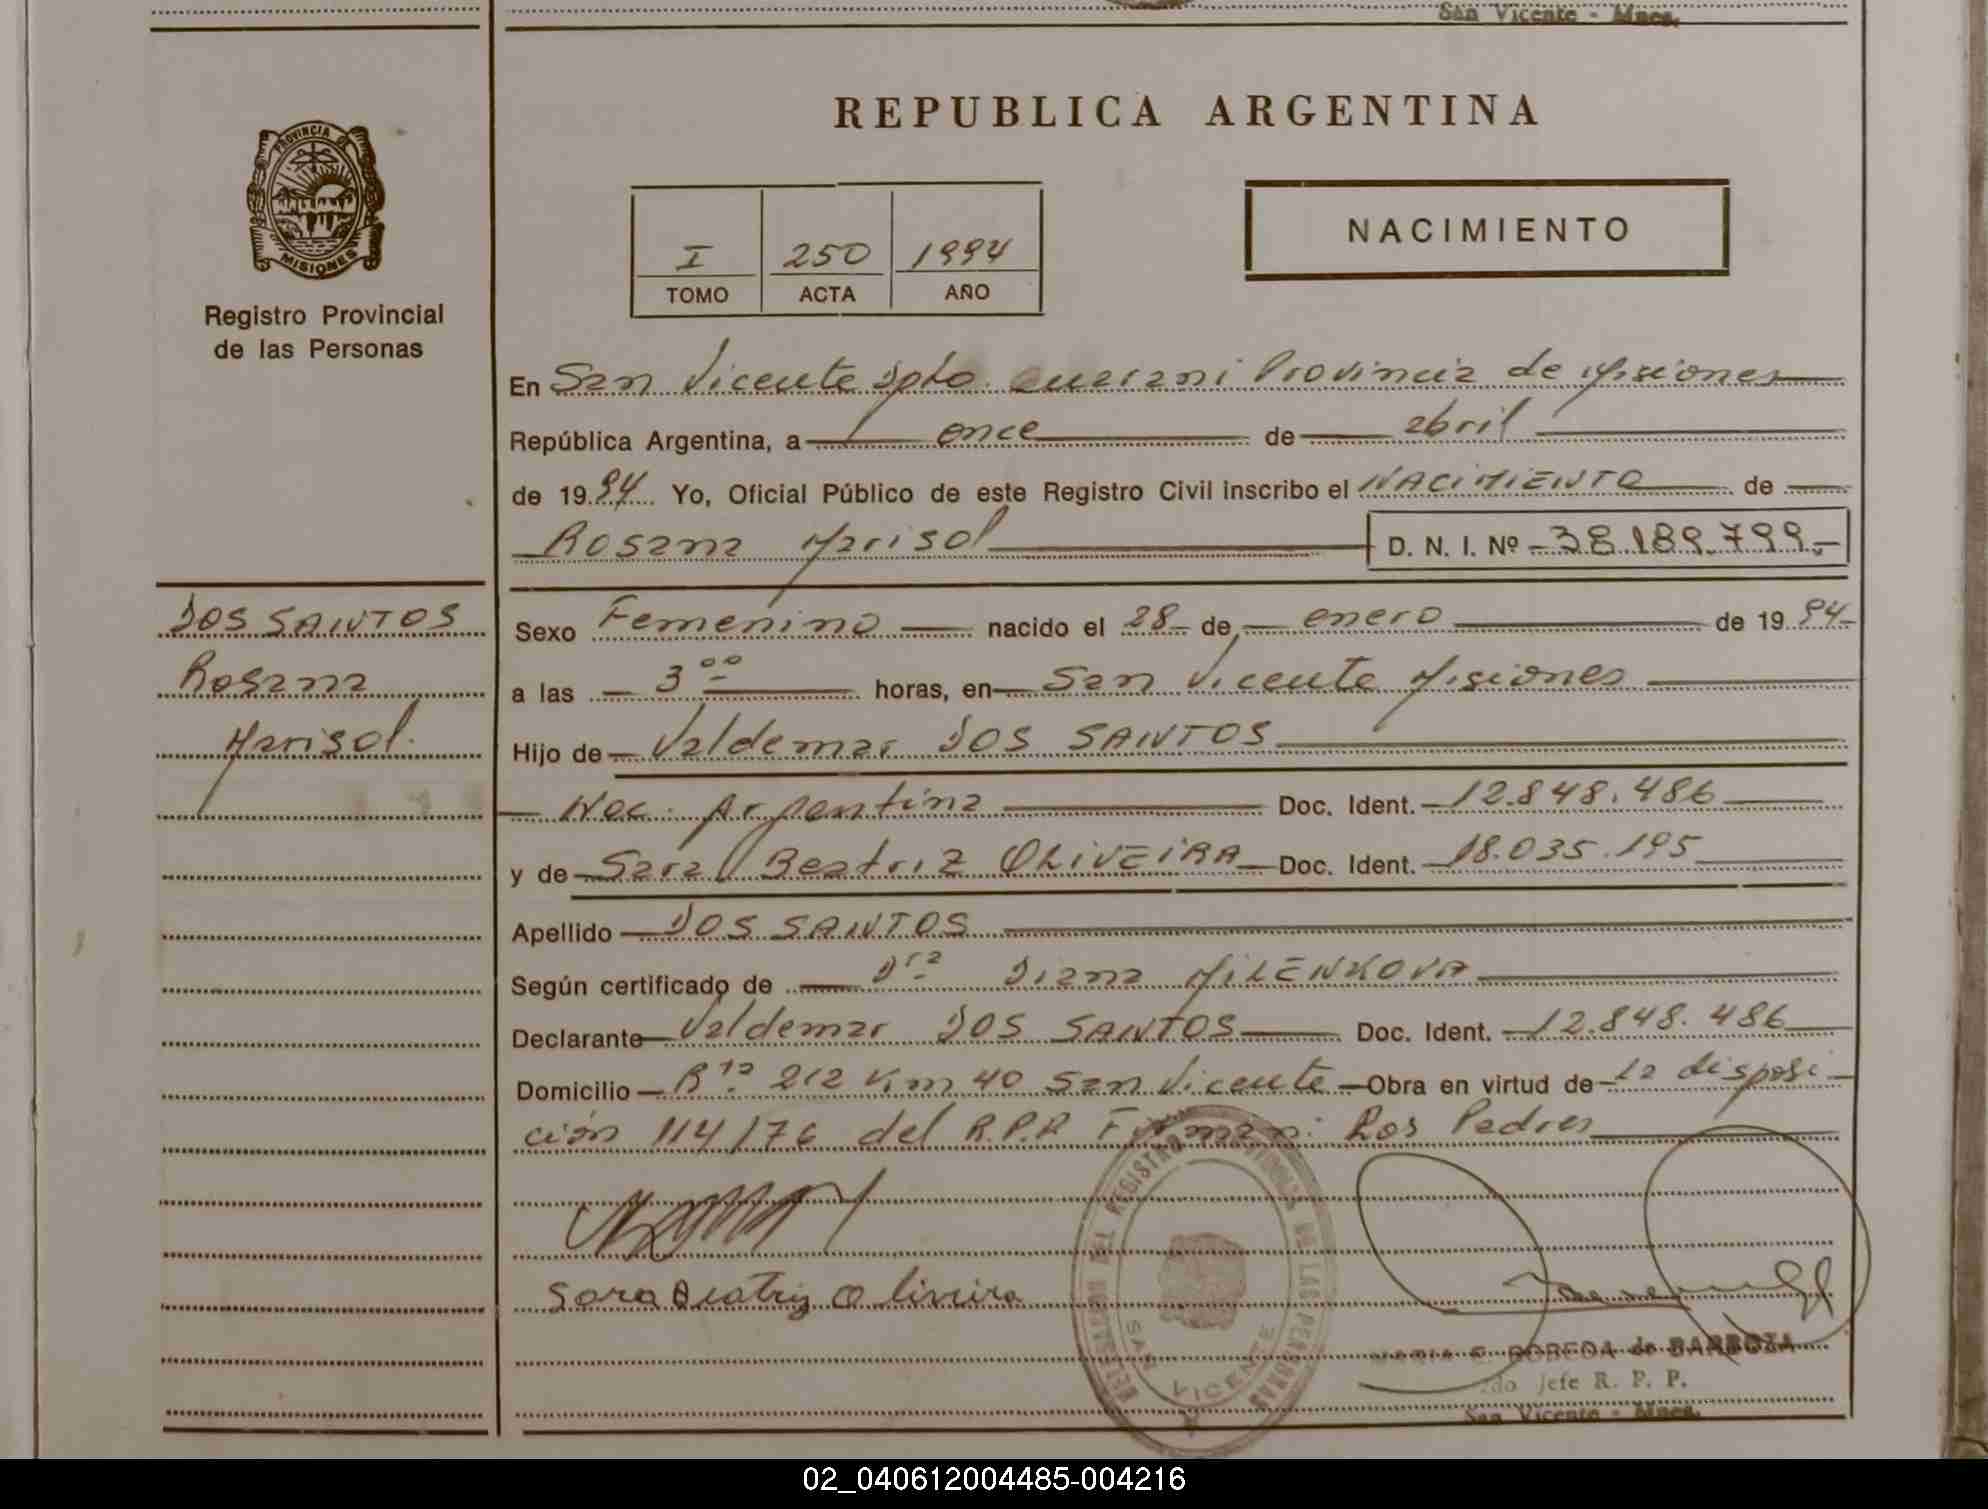 San Vicente - Mnes.
REPUBLICA ARGENTINA
PROVINCIA DE
MISIONES
Registro Provincial
de las Personas
I 250 1994
TOMO ACTA AÑO
NACIMIENTO
En San Vicente Dpto. Guarani Provincia de Misiones
República Argentina, a once de abril
de 1994 Yo, Oficial Público de este Registro Civil inscribo el NACIMIENTO de
Rosana Marisol D. N. I. Nº 38.189.799.-
DOS SANTOS
Rosana
Marisol.
Sexo Femenino nacido el 28 de enero de 1994
a las 3 00 horas, en San Vicente Misiones
Hijo de Valdemar DOS SANTOS
Nac. Argentina Doc. Ident. 12.848.486
y de Sara Beatriz OLIVEIRA Doc. Ident. 18.035.195
Apellido DOS SANTOS
Según certificado de Dra Diana MILENKOVA
Declarante Valdemar DOS SANTOS Doc. Ident. 12.848.486
Domicilio Rta. 212 Km 40 San Vicente Obra en virtud de la disposi
ción 114/76 del R.P.P. Firman: Los Padres
Sara Beatriz Oliveira
DELEGACION DEL REGISTRO PROVINCIAL DE LAS PERSONAS
SAN VICENTE
MARIA E. BOBEDA de BARBOZA
2do Jefe R. P. P.
San Vicente - Mnes.
02_040612004485-004216